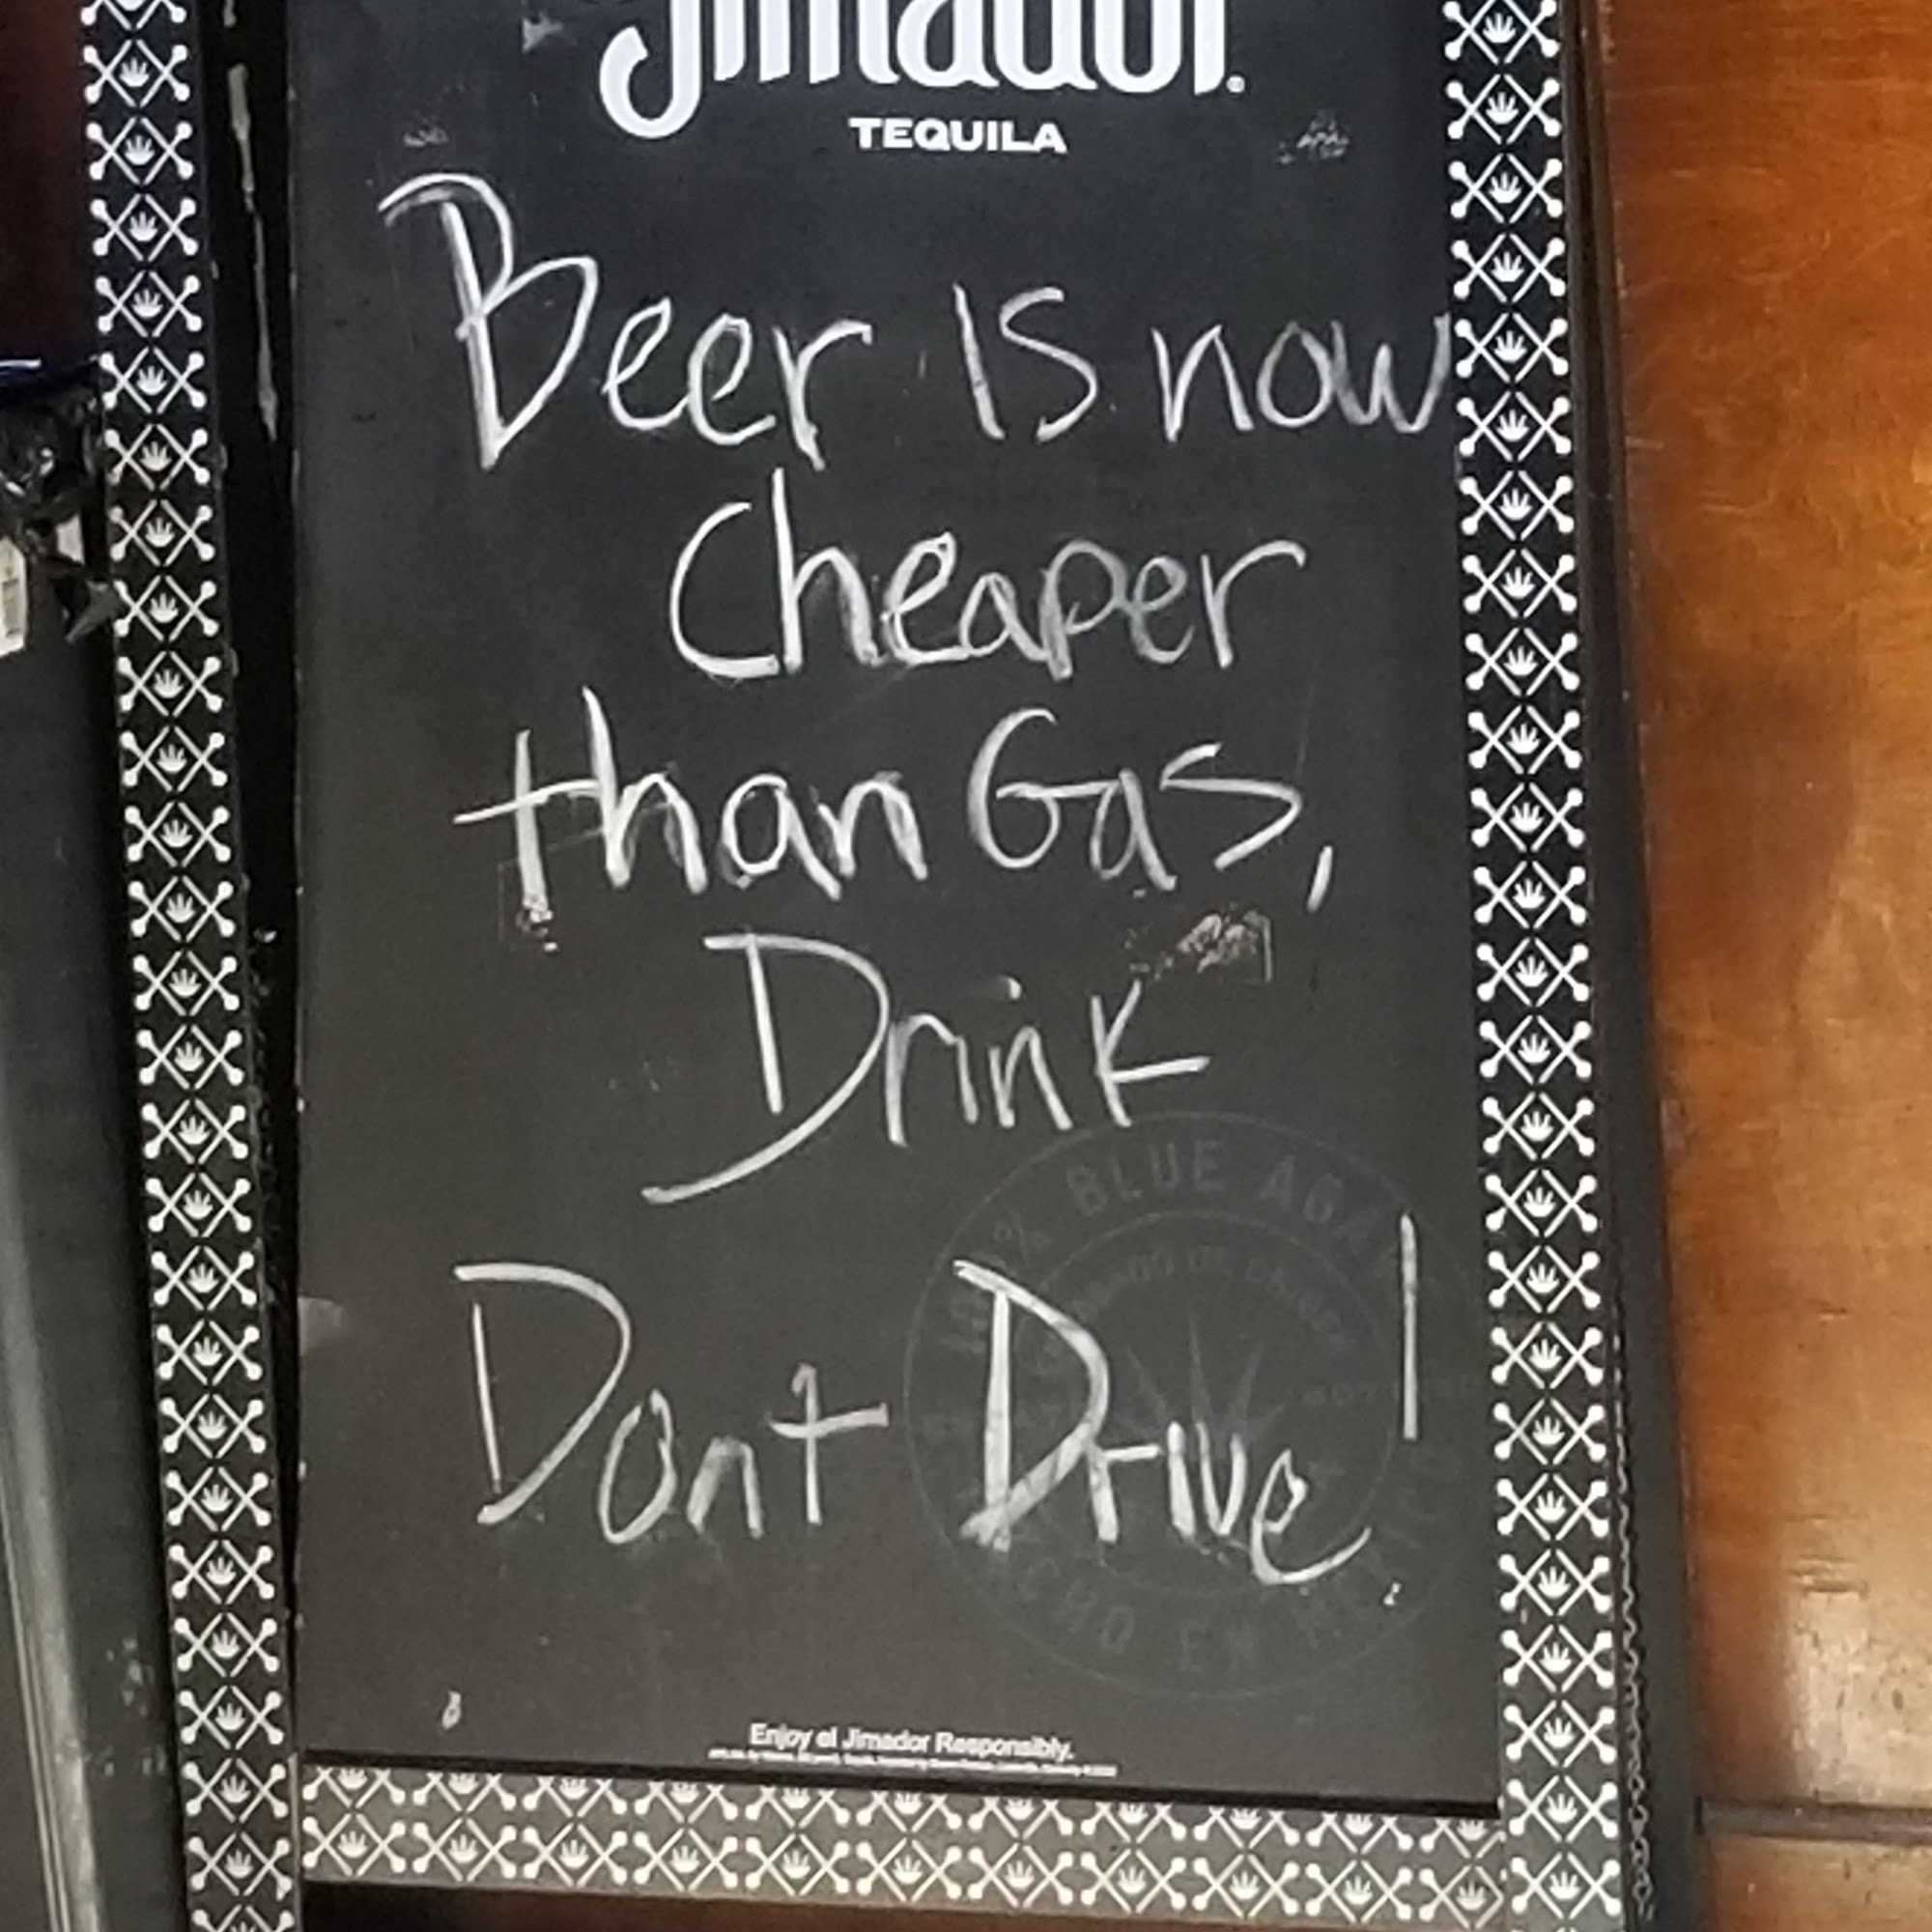 Jimador.
TEQUILA
Beer is now
Cheaper
than Gas,
Drink
Dont Drive!
BLUE AGA
Enjoy el Jimador Responsibly.